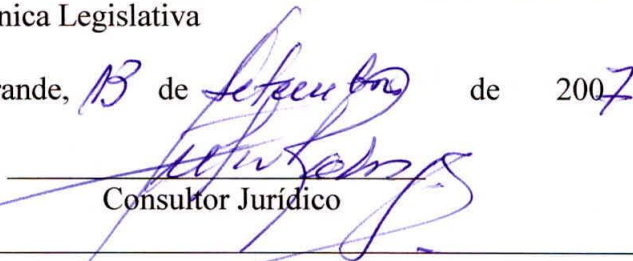 nica Legislativa
rande, 13 de Setembro de 2007
Consultor Jurídico